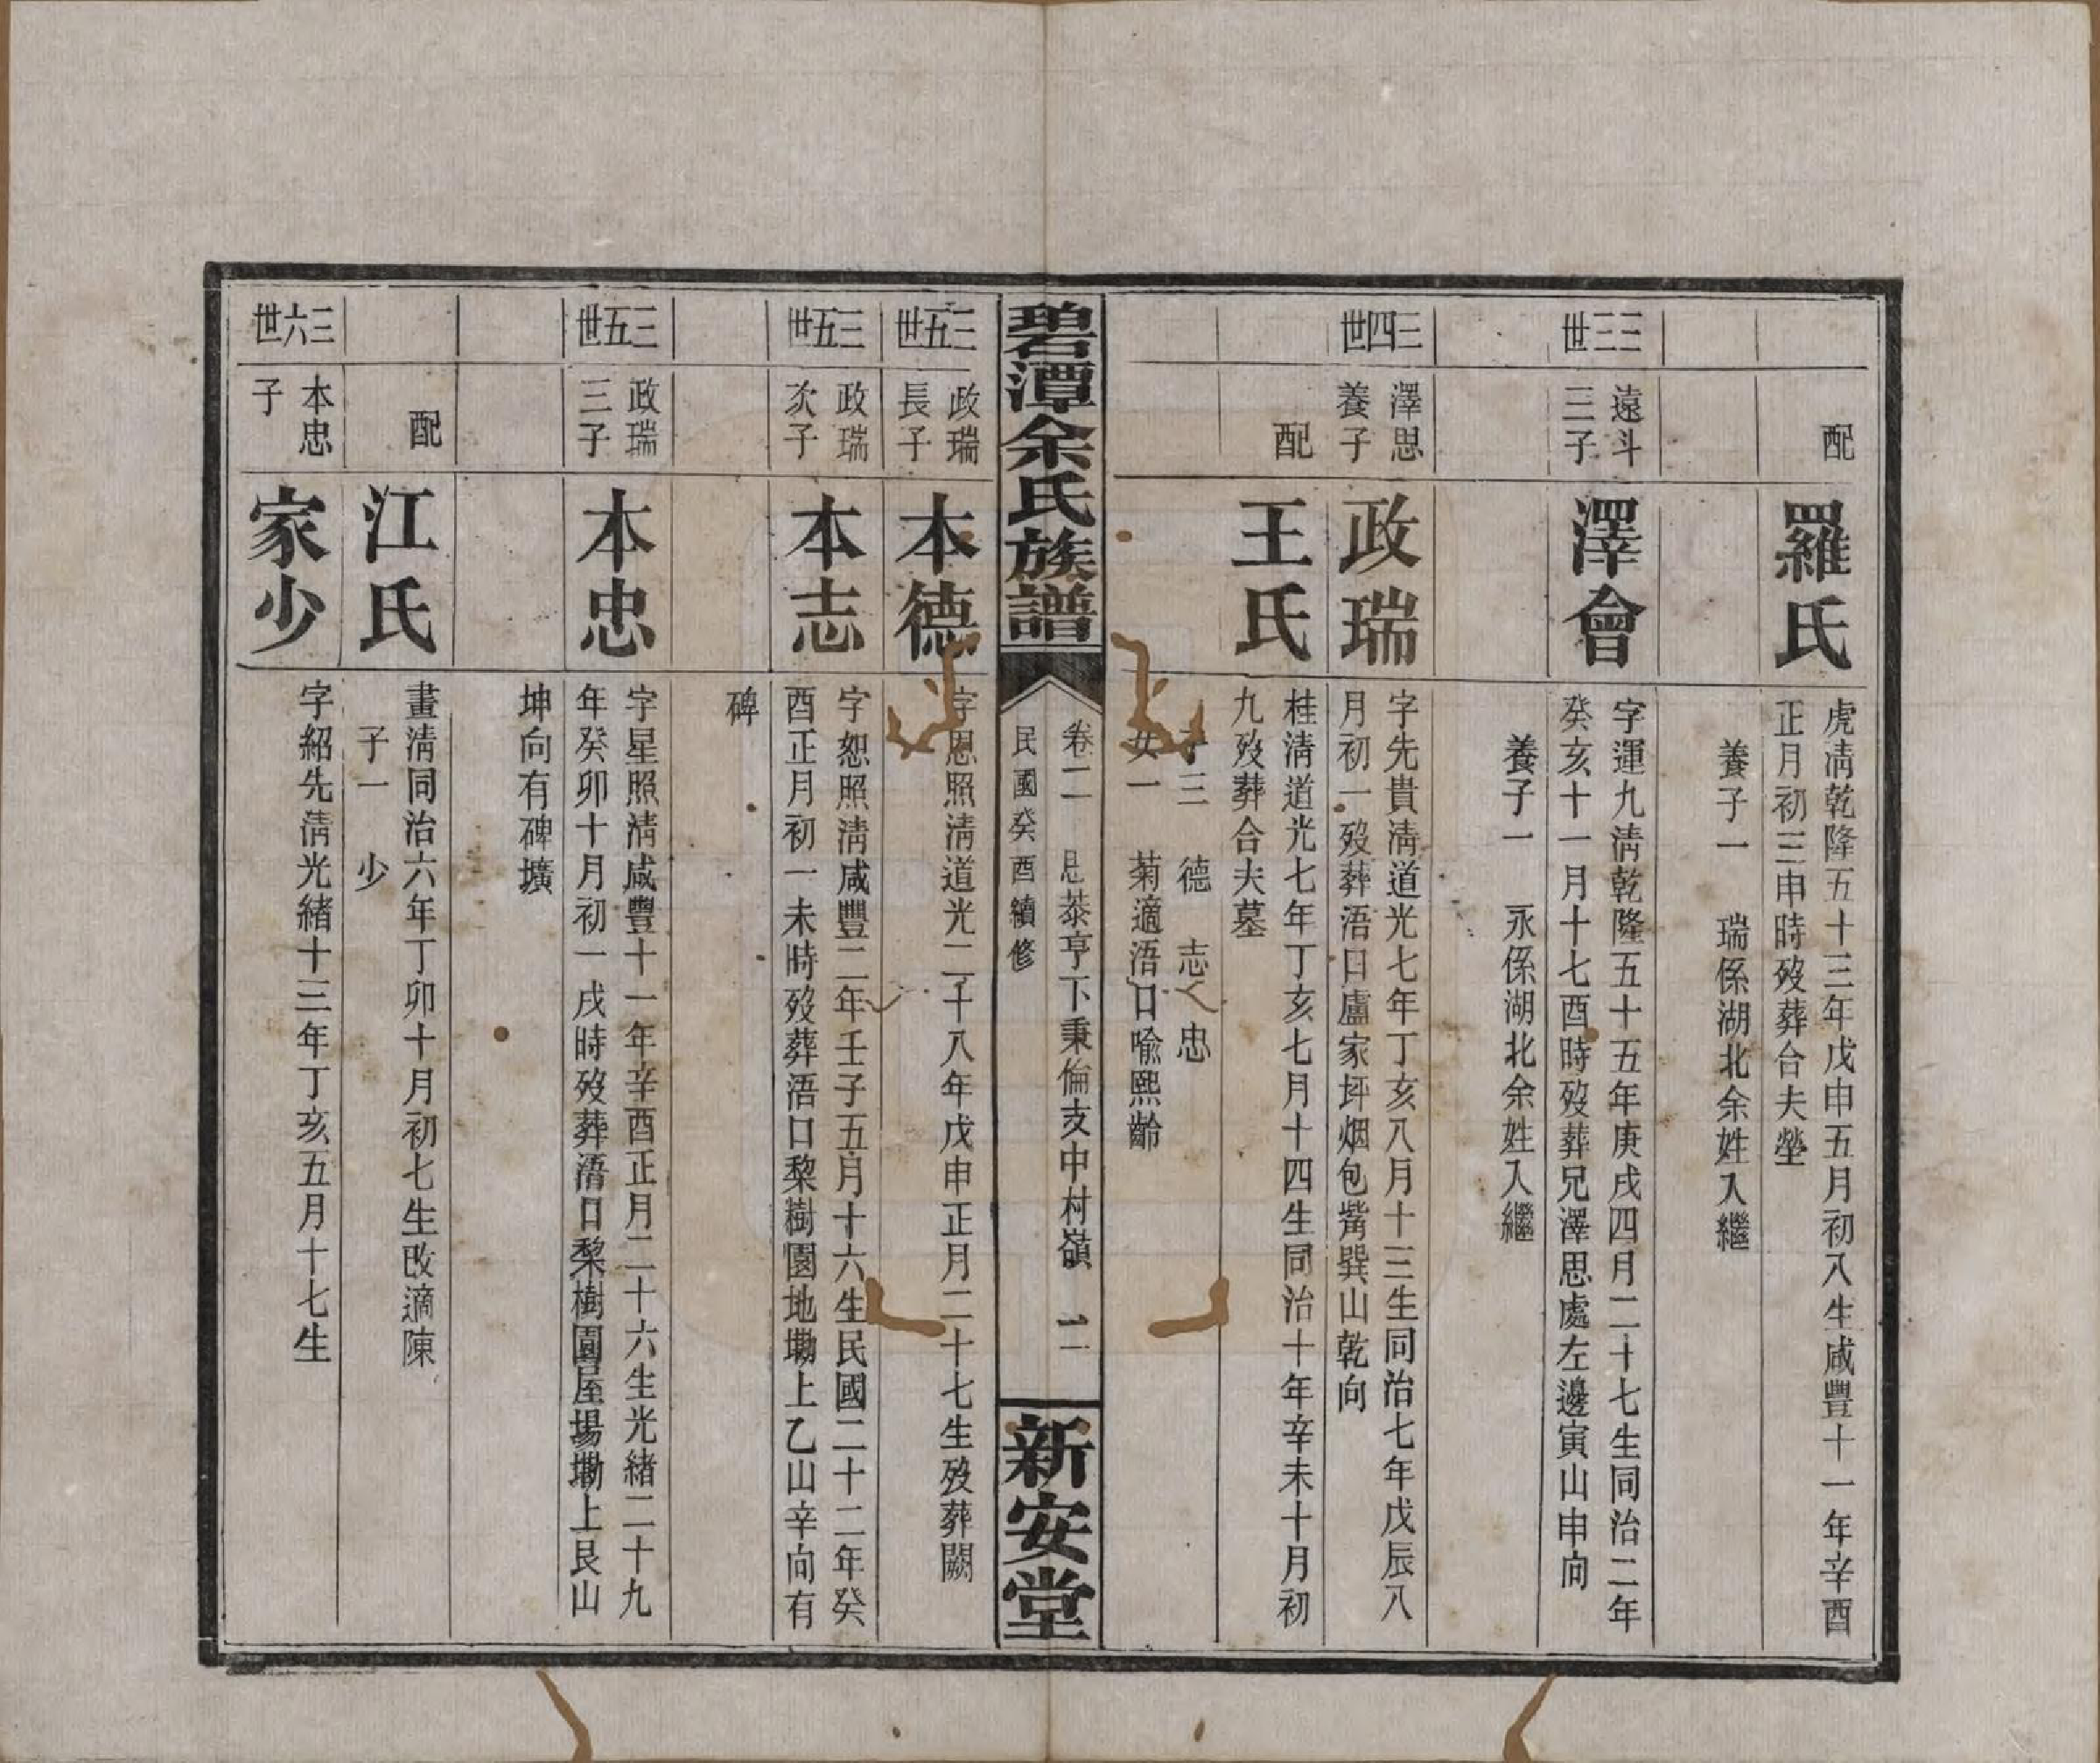 配
羅氏
虎淸乾隆五十三年戊申五月初八生咸豐十一年辛酉
正月初三申時歿葬合夫塋
養子一　瑞係湖北余姓入繼
三三世
遠斗
三子
澤會
字運九淸乾隆五十五年庚戌四月二十七生同治二年
癸亥十一月十七酉時歿葬兄澤思處左邊寅山申向
養子一　永係湖北余姓入繼
三四世
澤思
養子
政瑞
字先貴淸道光七年丁亥八月十三生同治七年戊辰八
月初一歿葬浯口盧家坪烟包觜巽山乾向
配
王氏
桂淸道光七年丁亥七月十四生同治十年辛未十月初
九歿葬合夫墓
子三　德　志　忠
女一　菊適浯口喻熙齡
碧潭余氏族譜
卷二　思㳟亨下秉倫支中村嶺　二
民國癸酉續修
新安堂
三五世
政瑞
長子
本德
字恩照淸道光二十八年戊申正月二十七生歿葬闕
三五世
政瑞
次子
本志
字恕照淸咸豐二年壬子五月十六生民國二十二年癸
酉正月初一未時歿葬浯口棃樹園地墈上乙山辛向有
碑
三五世
政瑞
三子
本忠
字星照淸咸豐十一年辛酉正月二十六生光緒二十九
年癸卯十月初一戌時歿葬浯口棃樹園屋場墈上艮山
坤向有碑壙
配
江氏
畫淸同治六年丁卯十月初七生改適陳
子一　少
三六世
本忠
子
家少
字紹先淸光緖十三年丁亥五月十七生